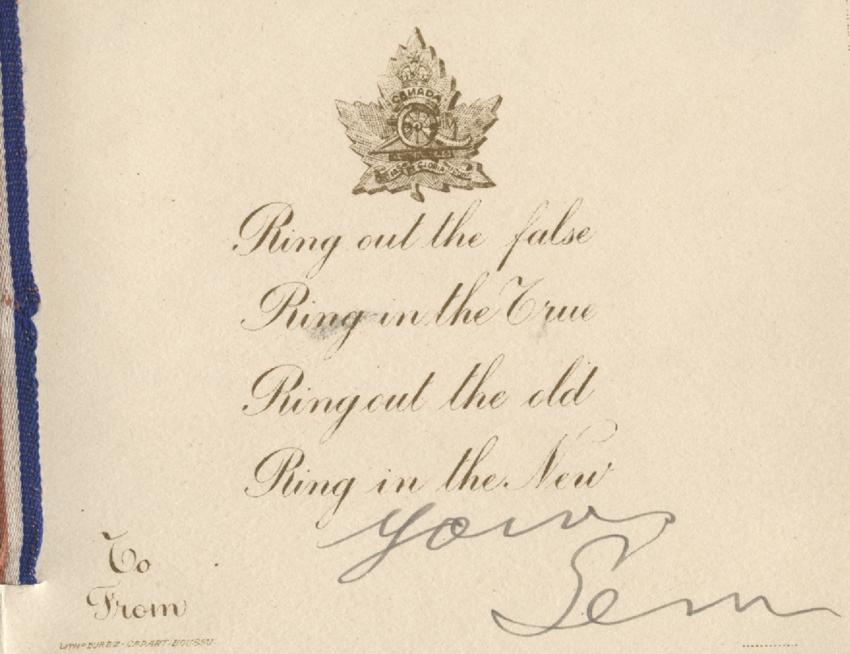 CANADA
Ring out the false
Ring in the True
Ring out the old
Ring in the New
Yours
Sem
To
From
LITHO DUREZ-CAPART-BOUSSU